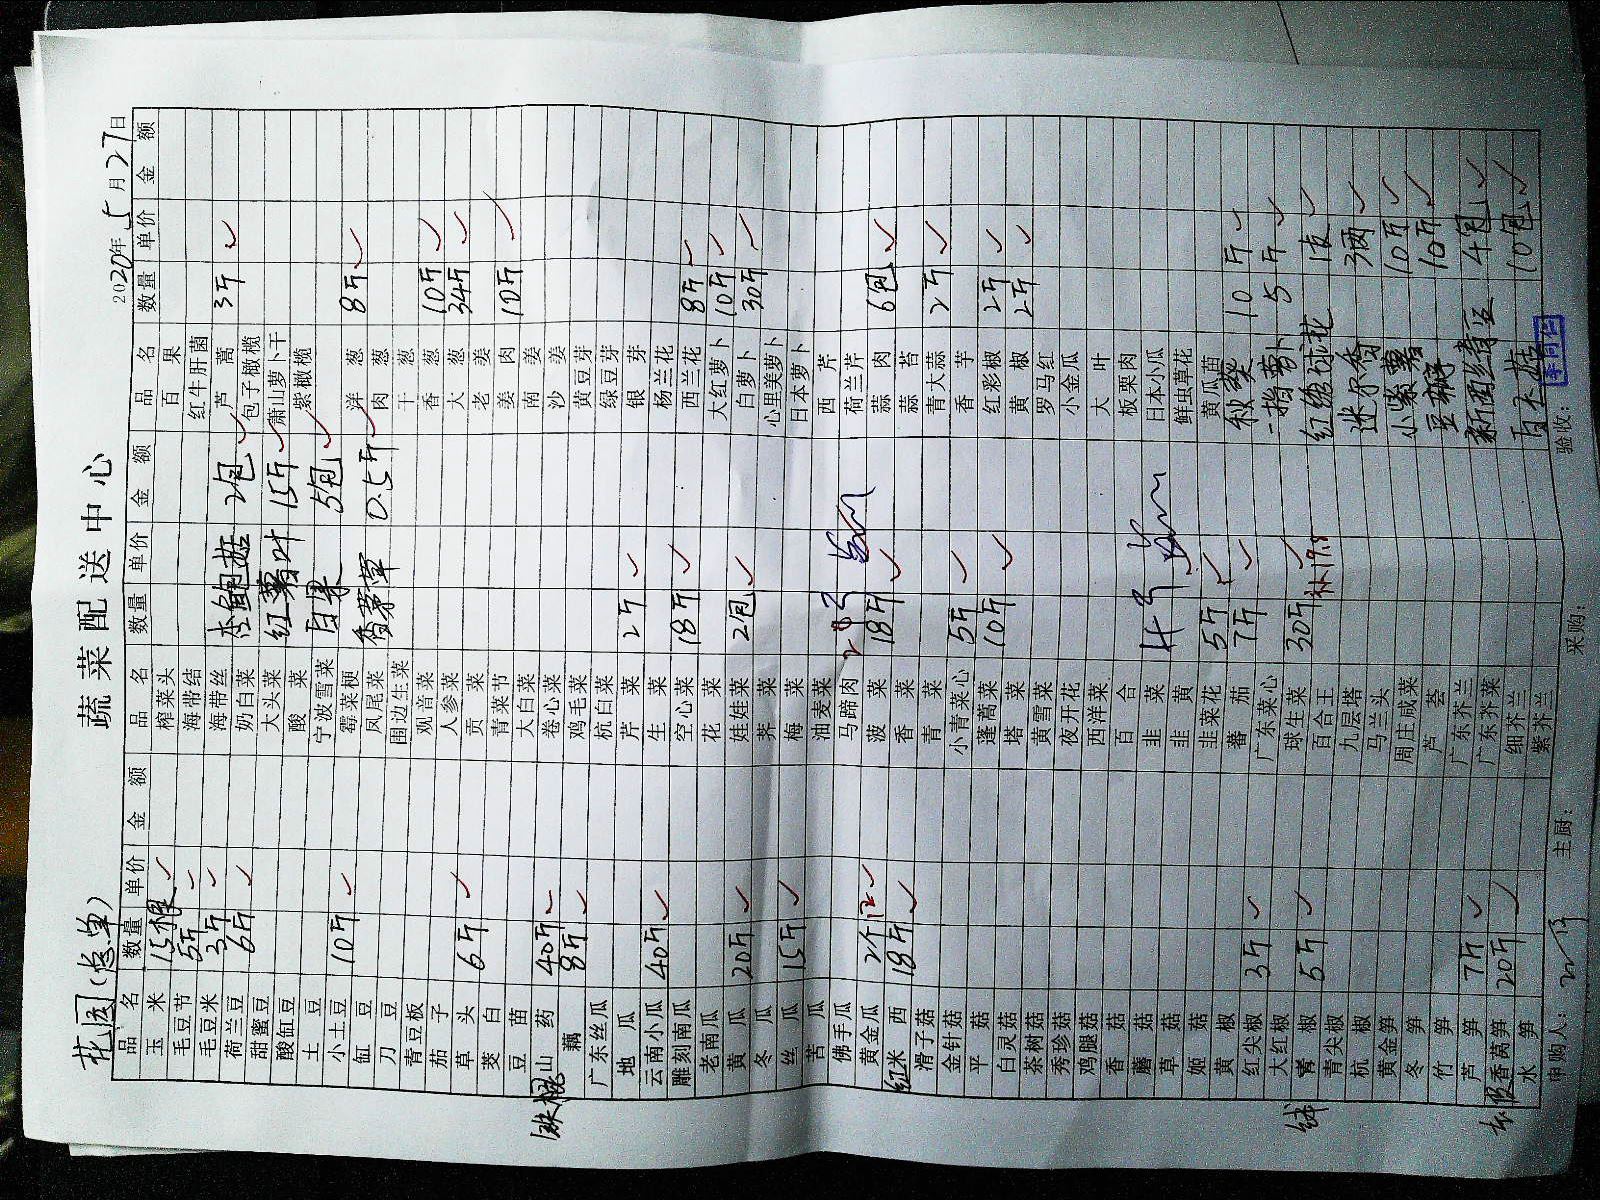 蔬菜配送中心
花园(总单)
2020年5月27日
品名 数量 单价 金额 品名 数量 单价 金额 品名 数量 单价 金额
玉米 15根 ✓
毛豆节 5斤 ✓
毛豆米 3斤 ✓
荷兰豆 6斤 ✓
甜蜜豆
酸缸豆
土豆
小土豆 10斤 ✓
缸豆
刀豆
青豆板
茄子
草头 6斤 ✓
茭白
豆苗
铁棍山药 40斤 ✓
藕 8斤 ✓
广东丝瓜
地瓜
云南小瓜 40斤 ✓
雕刻南瓜
老南瓜
黄瓜 20斤 ✓
冬瓜
丝瓜 15斤 ✓
苦瓜
佛手瓜
黄金瓜 2个 ✓
红米西 18斤 ✓
滑子菇
金针菇
平菇
白灵菇
茶树菇
秀珍菇
鸡腿菇
香菇
蘑菇
草菇
姬菇
黄椒
红尖椒 3斤 ✓
大红椒
椒 5斤 ✓
青尖椒
杭椒
黄金笋
冬笋
竹笋
芦笋 7斤 ✓
香莴笋 20斤 ✓
水笋
榨菜头
海带结
海带丝
奶白菜 杏鲍菇 2包 ✓
大头菜 红薯叶 15斤 ✓
酸菜
宁波雪菜 白果 5包 ✓
霉菜梗
凤尾菜 香茅草 0.5斤 ✓
围边生菜
观音菜
人参菜
贡菜
青菜节
大白菜
卷心菜
鸡毛菜
杭白菜
芹菜 2斤 ✓
生菜
空心菜 18斤 ✓
花菜
娃娃菜 2包 ✓
荠菜
梅菜
油麦菜
马蹄肉
菠菜 18斤 ✓
香菜
青菜
小青菜心 5斤 ✓
蓬蒿菜 10斤 ✓
塔菜
黄雪菜
夜开花
西洋菜
百合
韭菜
韭黄
韭菜花 5斤 ✓
蕃茄 7斤 ✓
广东菜心
球生菜 30斤 ✓ 补19.8
百合王
九层塔
马兰头
周庄咸菜
芦荟
广东芥兰
广东芥菜
细芥兰
紫芥兰
百果
红牛肝菌
芦蒿 3斤 ✓
包子橄榄
萧山萝卜干
紫橄榄
洋葱 8斤 ✓
肉葱
干葱
香葱 10斤 ✓
大葱 34斤 ✓
老姜
姜肉 10斤 ✓
南姜
沙姜
黄豆芽
绿豆芽
银芽
杨兰花
西兰花 8斤 ✓
大红萝卜 10斤 ✓
白萝卜 30斤 ✓
心里美萝卜
日本萝卜
西芹
荷兰芹
蒜肉 6包 ✓
蒜苔
青大蒜 2斤 ✓
香芋
红彩椒 2斤 ✓
黄椒 2斤 ✓
罗马红
小金瓜
大叶
板栗肉
日本小瓜
鲜虫草花
黄瓜苗
秋葵 10斤 ✓
一指萝卜 5斤 ✓
红绣球花 1支 ✓
迷尔香 3两 ✓
小紫薯 10斤 ✓
豆 10斤 ✓
4包 ✓
白玉菇 10包 ✓
申购人:
主厨:
采购:
验收: